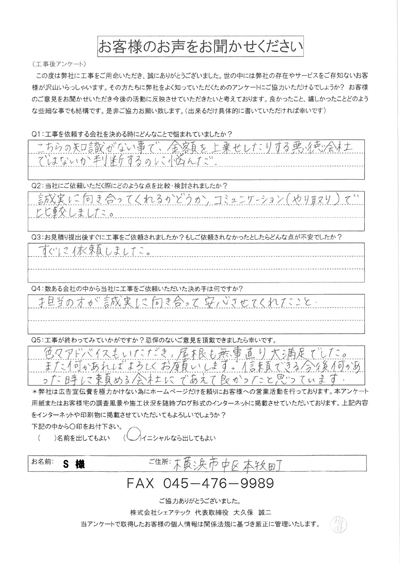 お客様のお声をお聞かせください
（工事後アンケート）
この度は弊社に工事をご用命いただき、誠にありがとうございました。世の中には弊社の存在やサービスをご存知ないお客
様が沢山いらっしゃいます。その方たちに弊社をよく知っていただくためのアンケートにご協力いただけるでしょうか？ お客様
のご意見をお聞かせいただき今後の活動に反映させていただきたいと考えております。良かったこと、嬉しかったことどのよう
な些細な事でも結構です。是非ご協力お願い致します。（出来るだけ具体的に書いていただければ幸いです）
Q1：工事を依頼する会社を決める時にどんなことで悩まれていましたか？
こちらの知識がない事で、金額を上乗せしたりする悪徳会社
ではないか判断するのに悩んだ。
Q2：当社にご依頼いただく際にどのような点を比較・検討されましたか？
誠実に向き合ってくれるかどうか、コミュニケーション（やりとり）で
比較しました。
Q3：お見積り提出後すぐに工事をご依頼されましたか？もしご依頼されなかったとしたらどんな点が不安でしたか？
すぐに依頼しました。
Q4：数ある会社の中から当社に工事をご依頼いただいた決め手は何ですか？
担当の方が誠実に向き合って安心させてくれたこと
Q5：工事が終わってみていかがですか？忌憚のないご意見を頂戴できましたら幸いです。
色々アドバイスもいただき、屋根も無事直り大満足でした。
また何かあればよろしくお願いします。信頼できる今後何かあ
った時に頼める会社にであえて良かったと思っています。
＊弊社は広告宣伝費を極力かけない為にホームページだけを頼りにお客様への営業活動を行っております。本アンケート
用紙またはお客様宅の調査風景や施工状況を随時ブログ形式のインターネットに掲載させていただいております。上記内容
をインターネットや印刷物に掲載させていただいてもよろしいでしょうか？
下記の中から○印をお付下さい。
（ ）名前を出してもよい （○）イニシャルなら出してもよい
お名前： S 様 ご住所： 横浜市中区本牧町
FAX 045-476-9989
ご協力ありがとうございました。
株式会社シェアテック 代表取締役 大久保 誠二
当アンケートで取得したお客様の個人情報は関係法規に基づき厳正に管理いたします。